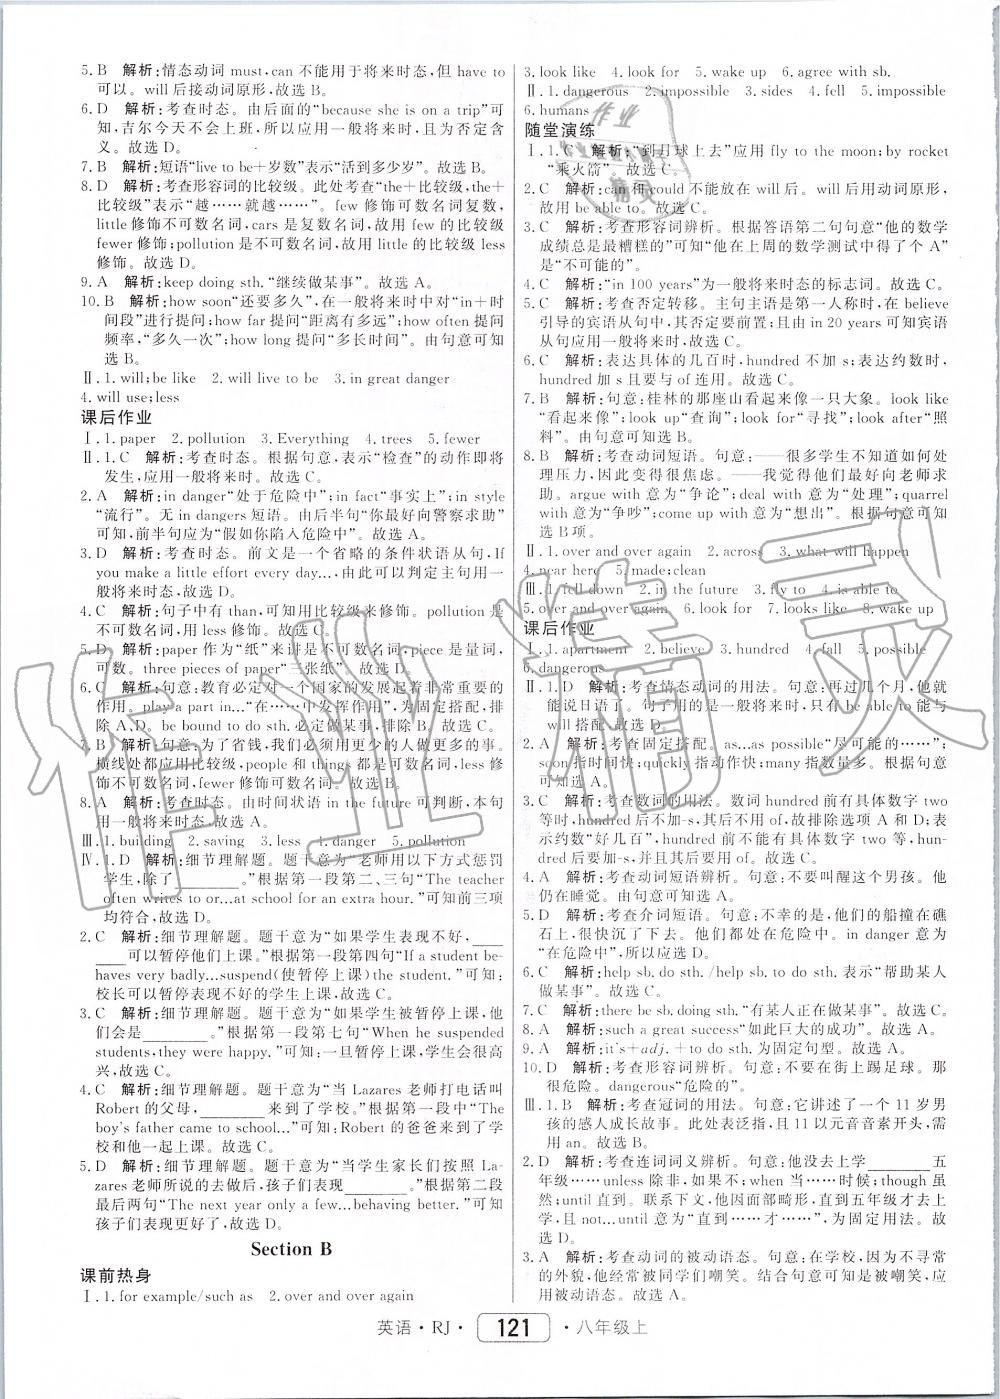 5. B 解析:情态动词 must,can 不能用于将来时态,但 have to
可以。will 后接动词原形,故选 B。
6. D 解析:考查时态。由后面的“because she is on a trip”可
知,吉尔今天不会上班,所以应用一般将来时,且为否定含
义。故选 D。
7. B 解析:短语“live to be+岁数”表示“活到多少岁”。故选 B。
8. D 解析:考查形容词的比较级。此处考查“the+比较级,the+
比较级”表示“越……就越……”。few 修饰可数名词复数,
little 修饰不可数名词,cars 是复数名词,故用 few 的比较级
fewer 修饰;pollution 是不可数名词,故用 little 的比较级 less
修饰。故选 D。
9. A 解析:keep doing sth.“继续做某事”。故选 A。
10. B 解析:how soon“还要多久”,在一般将来时中对“in+时
间段”进行提问;how far 提问“距离有多远”;how often 提问
频率,“多久一次”;how long 提问“多长时间”。由句意可知
选 B。
Ⅱ. 1. will;be like 2. will live to be 3. in great danger
4. will use;less
课后作业
Ⅰ. 1. paper 2. pollution 3. Everything 4. trees 5. fewer
Ⅱ. 1. C 解析:考查时态。根据句意,表示“检查”的动作即将
发生,应用一般将来时。故选 C。
2. A 解析:in danger“处于危险中”;in fact“事实上”;in style
“流行”。无 in dangers 短语。由后半句“你最好向警察求助”
可知,前半句应为“假如你陷入危险中”。故选 A。
3. D 解析:考查时态。前文是一个省略的条件状语从句,If
you make a little effort every day…,由此可以判定主句用一
般将来时态。故选 D。
4. C 解析:句子中有 than,可知用比较级来修饰。pollution 是
不可数名词,用 less 修饰。故选 C。
5. D 解析:paper 作为“纸”来讲是不可数名词;piece 是量词,
可数。three pieces of paper“三张纸”。故选 D。
6. C 解析:句意:教育必定对一个国家的发展起着非常重要的
作用。play a part in…“在……中发挥作用”,为固定搭配,排
除 A、D。be bound to do sth.必定做某事,排除 B。故选 C。
7. B 解析:句意:为了省钱,我们必须用更少的人做更多的事。
横线处都应用比较级,people 和 things 都是可数名词。less 修
饰不可数名词,fewer 修饰可数名词。故选 B。
8. A 解析:考查时态。由时间状语 in the future 可判断,本句
用一般将来时态。故选 A。
Ⅲ. 1. building 2. saving 3. less 4. danger 5. pollution
Ⅳ. 1. D 解析:细节理解题。题干意为“老师用以下方式惩罚
学生,除了________。”根据第一段第二、三句“The teacher
often writes to or…at school for an extra hour. ”可知前三项
均符合,故选 D。
2. C 解析:细节理解题。题干意为“如果学生表现不好,____
____可以暂停他们上课。”根据第一段第四句“If a student be-
haves very badly…suspend(使暂停上课)the student. ”可知:
校长可以暂停表现不好的学生上课,故选 C。
3. C 解析:细节理解题。题干意为“如果学生被暂停上课,他
们会是________。”根据第一段第七句“When he suspended
students,they were happy. ”可知:一旦暂停上课,他们会很高
兴,故选 C。
4. C 解析:细节理解题。题干意为“当 Lazares 老师打电话叫
Robert 的父母,________来到了学校。”根据第一段中“The
boy's father came to school…”可知:Robert 的爸爸来到了学
校和他一起上课。故选 C。
5. D 解析:细节理解题。题干意为“当学生家长们按照 La-
zares 老师所说的去做后,孩子们表现________。”根据第二段
最后两句“The next year only a few…behaving better. ”可知
孩子们表现更好了,故选 D。
Section B
课前热身
Ⅰ. 1. for example/such as 2. over and over again
3. look like 4. look for 5. wake up 6. agree with sb.
Ⅱ. 1. dangerous 2. impossible 3. sides 4. fell 5. impossible
6. humans
随堂演练
Ⅰ. 1. C 解析:“到月球上去”应用 fly to the moon;by rocket
“乘火箭”。故选 C。
2. C 解析:can 和 could 不能放在 will 后。will 应用动词原形,
故用 be able to。故选 C。
3. C 解析:考查形容词辨析。根据答语第二句句意“他的数学
成绩总是最糟糕的”可知“他在上周的数学测试中得了个 A”
是“不可能的”。
4. C 解析:“in 100 years”为一般将来时态的标志词。故选 C。
5. C 解析:考查否定转移。主句主语是第一人称时,在 believe
引导的宾语从句中,其否定要前置;且由 in 20 years 可知宾语
从句应用一般将来时,故选 C。
6. C 解析:表达具体的几百时,hundred 不加 s;表达约数时,
hundred 加 s 且要与 of 连用。故选 C。
7. B 解析:句意:桂林的那座山看起来像一只大象。look like
“看起来像”;look up“查询”;look for“寻找”;look after“照
料”。由句意可知选 B。
8. B 解析:考查动词短语。句意:——很多学生不知道如何处
理压力,因此变得很焦虑。——我觉得他们最好向老师求
助。argue with 意为“争论”;deal with 意为“处理”;quarrel
with 意为“争吵”;come up with 意为“想出”。根据句意可知
选 B 项。
Ⅱ. 1. over and over again 2. across 3. what will happen
4. near here 5. made;clean
Ⅲ. 1. fell down 2. in the future 3. fly to 4. is able to
5. over and over again 6. look for 7. looks like 8. wake up
课后作业
Ⅰ. 1. apartment 2. believe 3. hundred 4. fall 5. possible
6. dangerous
Ⅱ. 1. D 解析:考查情态动词的用法。句意:再过几个月,他就
能说日语了。句子用的是一般将来时,只有 be able to 能与
will 搭配,故选 D。
2. A 解析:考查固定搭配。as…as possible“尽可能的……”;
soon 指时间快;quickly 指动作快;many 指数量多。根据句意
可知选 A。
3. C 解析:考查数词的用法。数词 hundred 前有具体数字 two
等时,hundred 后不加-s,其后也不用 of,故排除选项 A 和 D;表
示约数“好几百”,hundred 前面不能有具体数字 two 等,hun-
dred 后要加-s,并且其后要用介词 of。故选 C。
4. A 解析:考查动词短语辨析。句意:不要叫醒这个男孩。他
仍在睡觉。由句意可知选 A。
5. D 解析:考查介词短语。句意:不幸的是,他们的船撞在礁
石上,很快沉了下去。他们都处在危险中。in danger 意为
“在危险中”,所以应选 D。
6. C 解析:help sb. do sth. /help sb. to do sth. 表示“帮助某人
做某事”。故选 C。
7. C 解析:there be sb. doing sth.“有某人正在做某事”。故选 C。
8. A 解析:such a great success“如此巨大的成功”。故选 A。
9. A 解析:it's+adj. +to do sth.为固定句型。故选 A。
10. D 解析:考查形容词辨析。句意:不要在街上踢足球。那
很危险。dangerous“危险的”。
Ⅲ. 1. B 解析:考查冠词的用法。句意:它讲述了一个 11 岁男
孩的感人成长故事。此处表泛指,且 11 以元音音素开头,需
用 an。故选 B。
2. D 解析:考查连词词义辨析。句意:他没去上学________五
年级……unless 除非,如果不;when 当……时候;though 虽
然;until 直到。联系下文,他因面部畸形,直到五年级才去上
学,且 not…until 意为“直到……才……”,为固定用法。故
选 D。
3. A 解析:考查动词的被动语态。句意:在学校,因为不寻常
的外貌,他经常被同学们嘲笑。结合句意可知是被嘲笑,应
用被动语态。故选 A。
英语·RJ· 121 ·八年级上
作业精灵